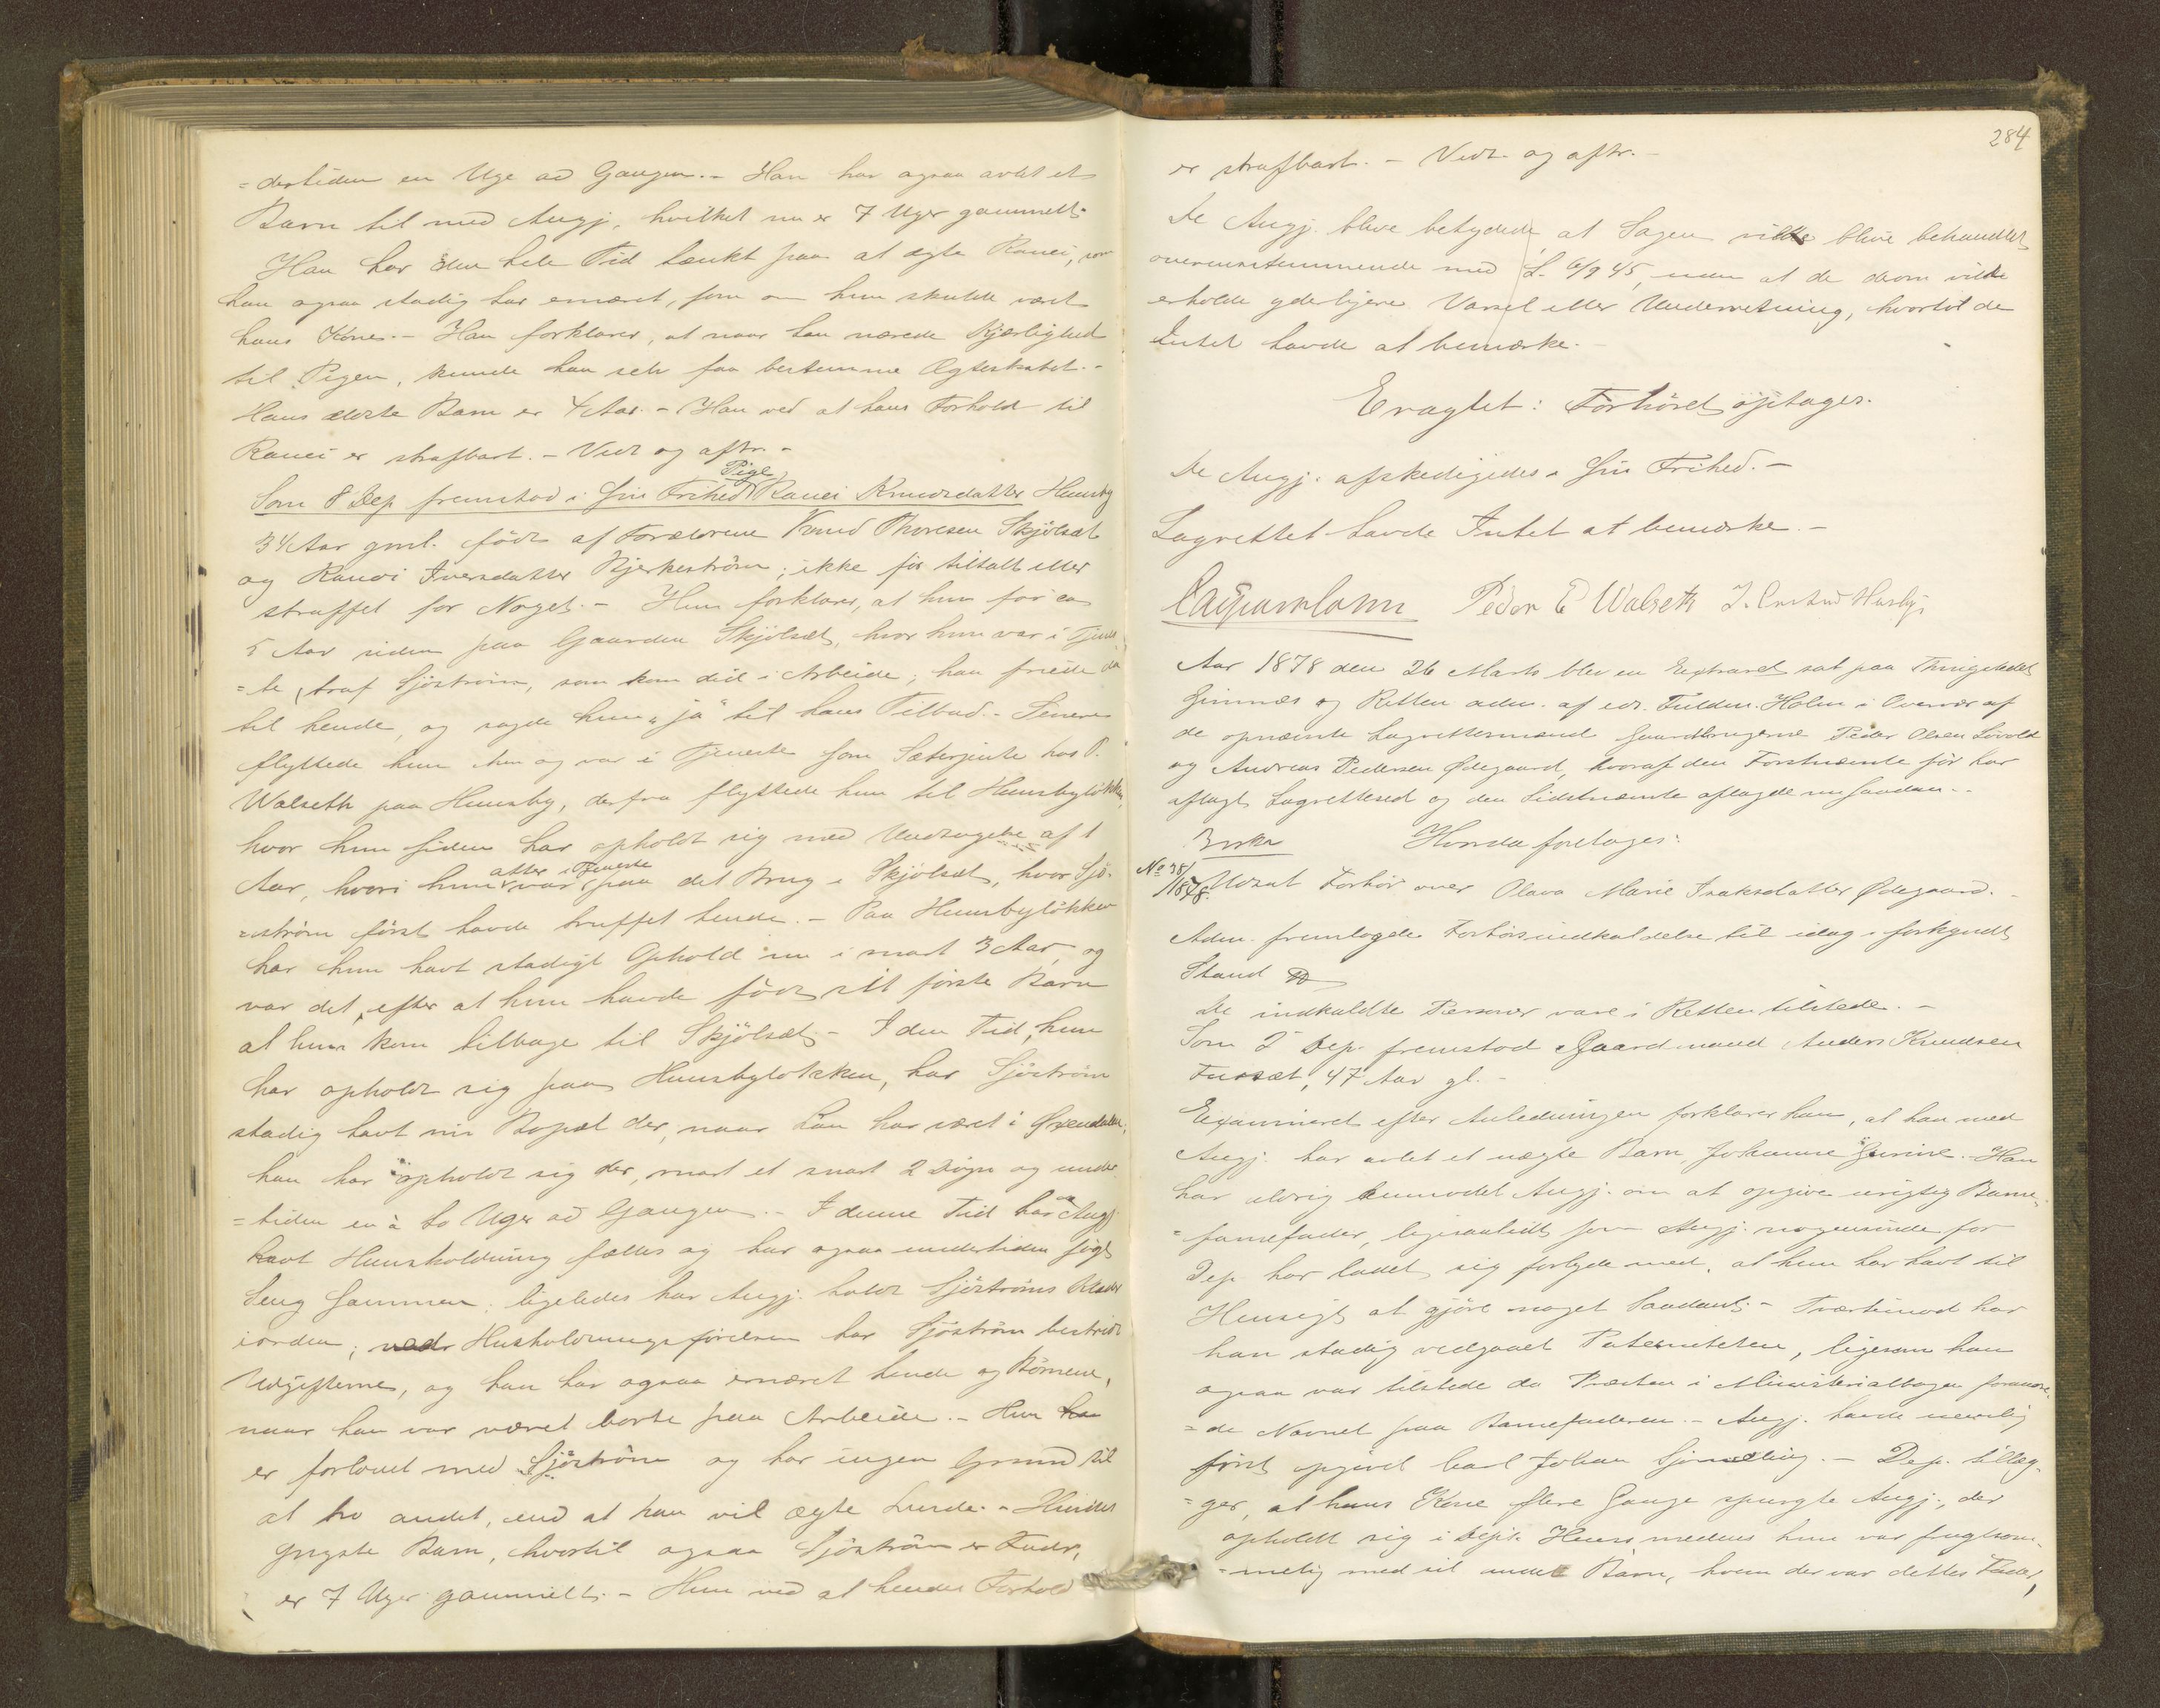 =dertiden en Uge ad Gangen. – Han har ogsaa avlet et
Barn til med Angj., hvilket nu er 7 Uger gammelt.
Han har den hele Tid tænkt paa at ægte Ranei, som
han ogsaa stadig har ernæret, som om hun skulde været
hans Kone. – Han forklarer, at naar han nærede Kjærlighed
til Pigen, kunde han selv faa bestemme Ægteskabet. –
Hans ældste Barn er 4 Aar. – Han ved at hans Forhold til
Ranei er strafbart. – Vedt og aftr. –
Som 8 Dep fremstod i sin Frihed Pige Ranei Knudsdatter Huusby
34 Aar gml. født af Forældrene Knud Thoresen Skjölsæt
og Randi Iversdatter Bjerkeström; ikke før tiltalt eller
straffet for Noget. – Hun forklarer, at hun for ca
5 Aar siden paa Gaarden Skjölsæt, hvor hun var i Tjene
=te, traf Sjöström, som kom did i Arbeide; han friede da
til hende, og sagde hun „ja" til hans Tilbud. – Senere
flyttede hun hen og var i Tjeneste som Sæterjente hos P.
Walseth paa Huusby, derfra flyttede hun til Huusbylökken,
hvor hun siden har opholdt sig med Undtagelse af 1
Aar, hvori hun atter var i Tjeneste paa det Brug i Skjölsæt, hvor Sjö-
=ström först havde truffet hende. – Paa Huusbylökken
har hun havt stadigt Ophold nu i snart 3 Aar, og
var det, efter at hun havde födt sit förste Barn
at hun kom tilbage til Skjölsæt. – I den Tid, hun
har opholdt sig paa Huusbylökken, har Sjöström
stadig havt sin Bopæl der, naar han har været i Öxendalen,
han har opholdt sig der, snart et snart 2 Døgn og under
=tiden en à to Uger ad Gangen. – I denne Tid har Angj
havt Huusholdning fælles og har ogsaa undertiden søgt
Seng sammen; ligeledes har Angj. holdt Sjöströms Klæder
iorden; Husholdningsførelsen har Sjöström bestridt
Udgifterne, og han har ogsaa ernæret hende og Børnene,
naar han var været borte paa Arbeide. – Hun
er forlovet med Sjöström og har ingen Grund til
at tro andet, end at han vil ægte hende. – Hendes
yngste Barn, hvortil ogsaa Sjöström er Fader,
er 7 Uger gammelt. – Hun ved at hendes Forhold
284
er strafbart. – Vedt. og aftr. –
De Angj. bleve betydede, at Sagen vilde blive behandlet
overensstemmende med L. 6/9 45, uden at de derom vilde
erholde yderligere Varsel eller Underretning, hvortil de
Intet havde at bemærke. –
Eragtet: Forhöret optages.
De Angj. afskedigedes i sin Frihed. –
Lagrettet havde Intet at bemærke. –
Peder E Walseth
Aar 1878 den 26 Marts blev en Extraret sat paa Thingstedet
Gimnæs og Retten adm. af edsv. Fuldm. Holm i Overvær af
de opnævnte Lagrettesmænd Gaardbrugerne Peder Olsen Lövold
og Andreas Pedersen Ødegaard, hvoraf den Førstnævnte før har
aflagt Lagrettesed og den Sidstnævnte aflagde nu saadan. –
Hvorda foretages:
No 38/1878. Udsat Forhör over Olava Marie Isaksdatter Ødegaard. –
Adm. fremlagde Forhörsindkaldelse til idag i forkyndt
Stand
De indkaldte Personer vare i Retten tilstede. –
Som 2 Dep. fremstod Gaardmand Anders Knudsen
Fursæt, 47 Aar gl. –
Examineret efter Anledningen forklarer han, at han med
Angj. har avlet et uægte Barn, Johanne Gurine. Han
har aldrig anmodet Angj. om at opgive urigtig Barne-
=farnefader, ligesaalidt som Angj. nogensinde for
Dep. har ladet sig forlyde med, at hun har havt til
Hensigt at gjöre noget Saadant. – Tværtimod har
han stadig vedgaaet Paterniteten, ligesom han
ogsaa var tilstede da Præsten i Ministerialbogen forandre-
=de Navnet paa Barnefaderen. – Angj. havde nemlig
först opgivet Carl Johan – Dep. tillæg-
=ger, at hans Kone flere Gange spurgte Angj., der
opholdt sig i Dept. Huus, medens hun var frugtsom-
=melig med sit andet Barn, hvem der var dettes Fader,